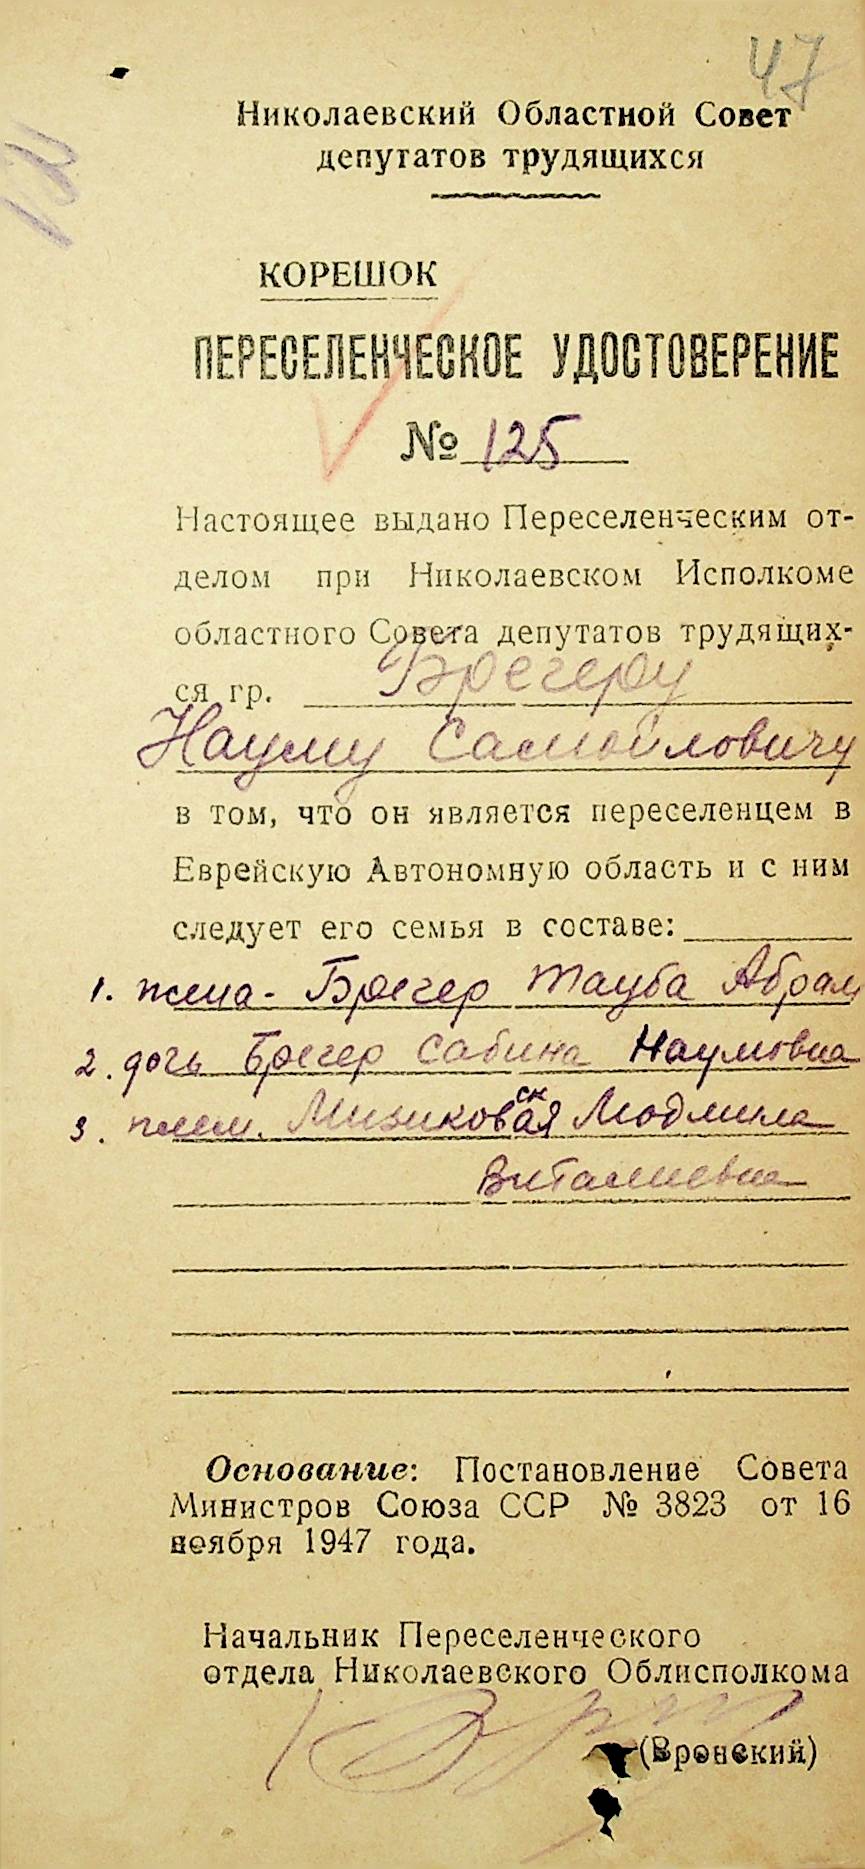 47
12
Николаевский Областной Совет
депутатов трудящихся
КОРЕШОК
ПЕРЕСЕЛЕНЧЕСКОЕ УДОСТОВЕРЕНИЕ
№ 125
Настоящее выдано Переселенческим от-
делом при Николаевском Исполкоме
областного Совета депутатов трудящих-
ся гр. Брегеру
Науму Самойловичу
в том, что он является переселенцем в
Еврейскую Автономную область и с ним
следует его семья в составе:
1. жена - Брегер Тауба Абрам
2. дочь Брегер Сабина Наумовна
3. плем. Мизиковская Людмила
Виталиевна
Основание: Постановление Совета
Министров Союза ССР № 3823 от 16
ноября 1947 года.
Начальник Переселенческого
отдела Николаевского Облисполкома
(Вронский)